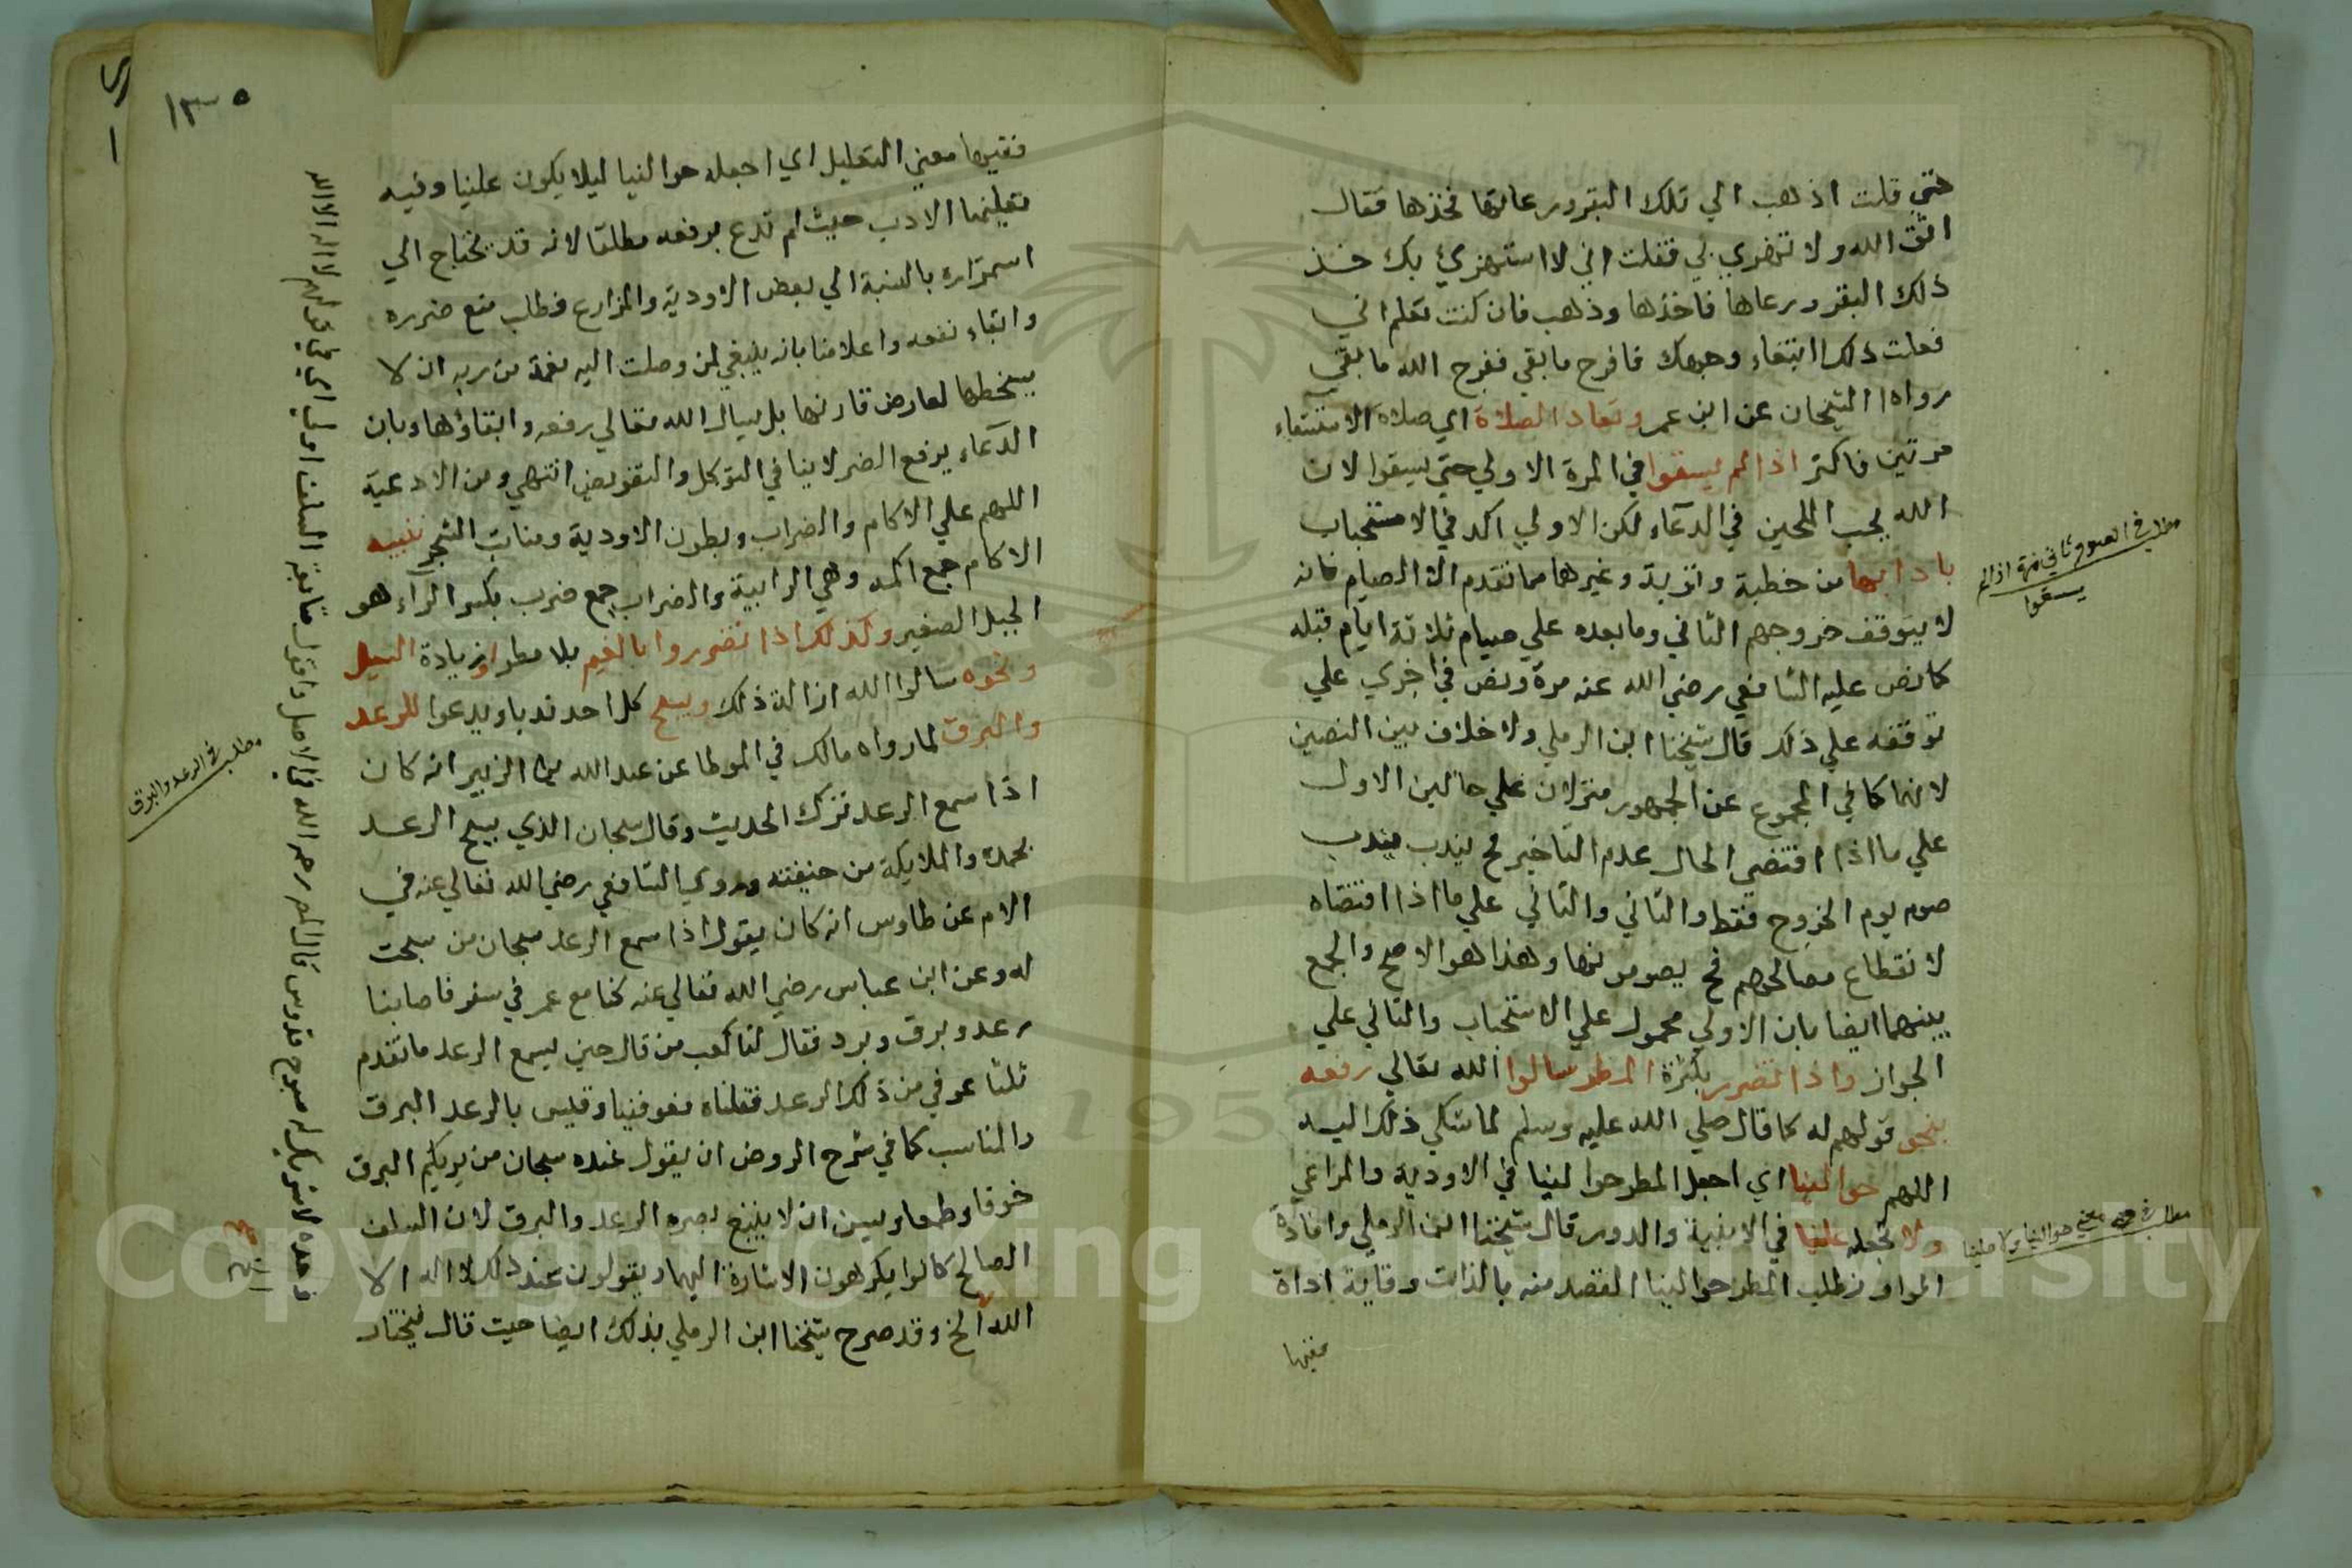 حتي قلت اذهب الي تلك البقر ورعاتها فخذها فقال
اتق الله ولا تهزي بي فقلت اني لا استهزئ بك خذ
ذلك البقر ورعاها فاخذها وذهب فان كنت تعلم اني
فعلت ذلك ابتغاء وجهك فافرج مابقي ففرج الله مابقي
رواه الشيخان عن ابن عمر وتعاد الصلاة اي صلاة الاستسقاء
مرتين فاكثر اذا لم يسقوا في المرة الاولي حتي يسقوا لان
الله يحب الملحين في الدعاء لكن الاولي اكد في الاستحباب
بادابها من خطبة وتوبة وغيرها مما تقدم الا الصيام فانه
لا يتوقف خروجهم الثاني ومابعده علي صيام ثلاثة ايام قبله
كما نص عليه الشافعي رضي الله عنه مرة ونص في اخري علي
توقفه علي ذلك قال شيخنا ابن الرملي ولا خلاف بين النصين
لانهما كما في المجموع عن الجمهور منزلان علي حالين الاول
علي ما اذا اقتضي الحال عدم التاخير فح يندب يندب
صوم يوم الخروج فقط والثاني والثاني علي ما اذا اقتضاه
لانقطاع مصالحهم فح يصومونها وهذا هو الاصح والجمع
بينهما ايضا بان الاولي محمول علي الاستحباب والثاني علي
الجواز واذا تضرر بكثرة المطر سالوا الله تعالي رفعه
بنحو قولهم له كما قال صلي الله عليه وسلم لما شكي ذلك اليه
اللهم حوالينا اي اجعل المطر حوالينا في الاودية والمراعي
ولا تجعله علينا في الابنية والدور قال شيخنا ابن الرملي وافادة
الواو ان طلب المطر حوالينا القصد منه بالذات وقاية اداة
ففيها
مطلب في الصوم ثاني مرة اذا لم
يسقوا
مطلب في معني حوالينا ولا علينا
١٣٥
ففيها معني التعليل اي اجعله حوالينا ليلا يكون علينا وفيه
تعليمنا الادب حيث لم تدع برفعه مطلقا لانه قد يحتاج الي
استمراره بالنسبة الي بعض الاودية والمزارع فطلب منع ضرره
وابقاء نفعه واعلامنا بانه ينبغي لمن وصلت اليه نعمة من ربه ان لا
يسخطها لعارض قارنها بل يسال الله تعالي رفعه وابقاؤها وبان
الدعاء برفع الضر لا ينافي التوكل والتفويض انتهي ومن الادعية
اللهم علي الاكام والضراب وبطون الاودية ومنابت الشجر تنبيه
الاكام جمع اكمه وهي الرابية والضراب جمع ضرب بكسر الراء هو
الجبل الصغير وكذلك اذا تضرروا بالغيم بلا مطر او زيادة النيل
ونحوه سالوا الله ازالة ذلك ويسبح كل احد ندبا ويدعوا للرعد
والبرق لما رواه مالك في الموطا عن عبد الله بن الزبير انه كان
اذا سمع الرعد ترك الحديث وقال سبحان الذي يسبح الرعد
بحمده والملايكة من خيفته وروي الشافعي رضي الله تعالي عنه في
الام عن طاوس انه كان يقول اذا سمع الرعد سبحان من سبحت
له وعن ابن عباس رضي الله تعالي عنه كنا مع عمر في سفر فاصابنا
رعد وبرق وبرد فقال لنا كعب من قال حين يسمع الرعد ما تقدم
ثلثا عوفي من ذلك الرعد فقلناه فعوفينا وقيس بالرعد البرق
والمناسب كما في شرح الروض ان يقول عنده سبحان من يريكم البرق
خوفا وطمعا ويسن ان لا يتبع بصره الرعد والبرق لان السلف
الصالح كانوا يكرهون الاشارة اليهما ويقولون عند ذلك لا اله الا
الله الخ وقد صرح شيخنا ابن الرملي بذلك ايضا حيث قال فيختار
مطلب في الرعد والبرق